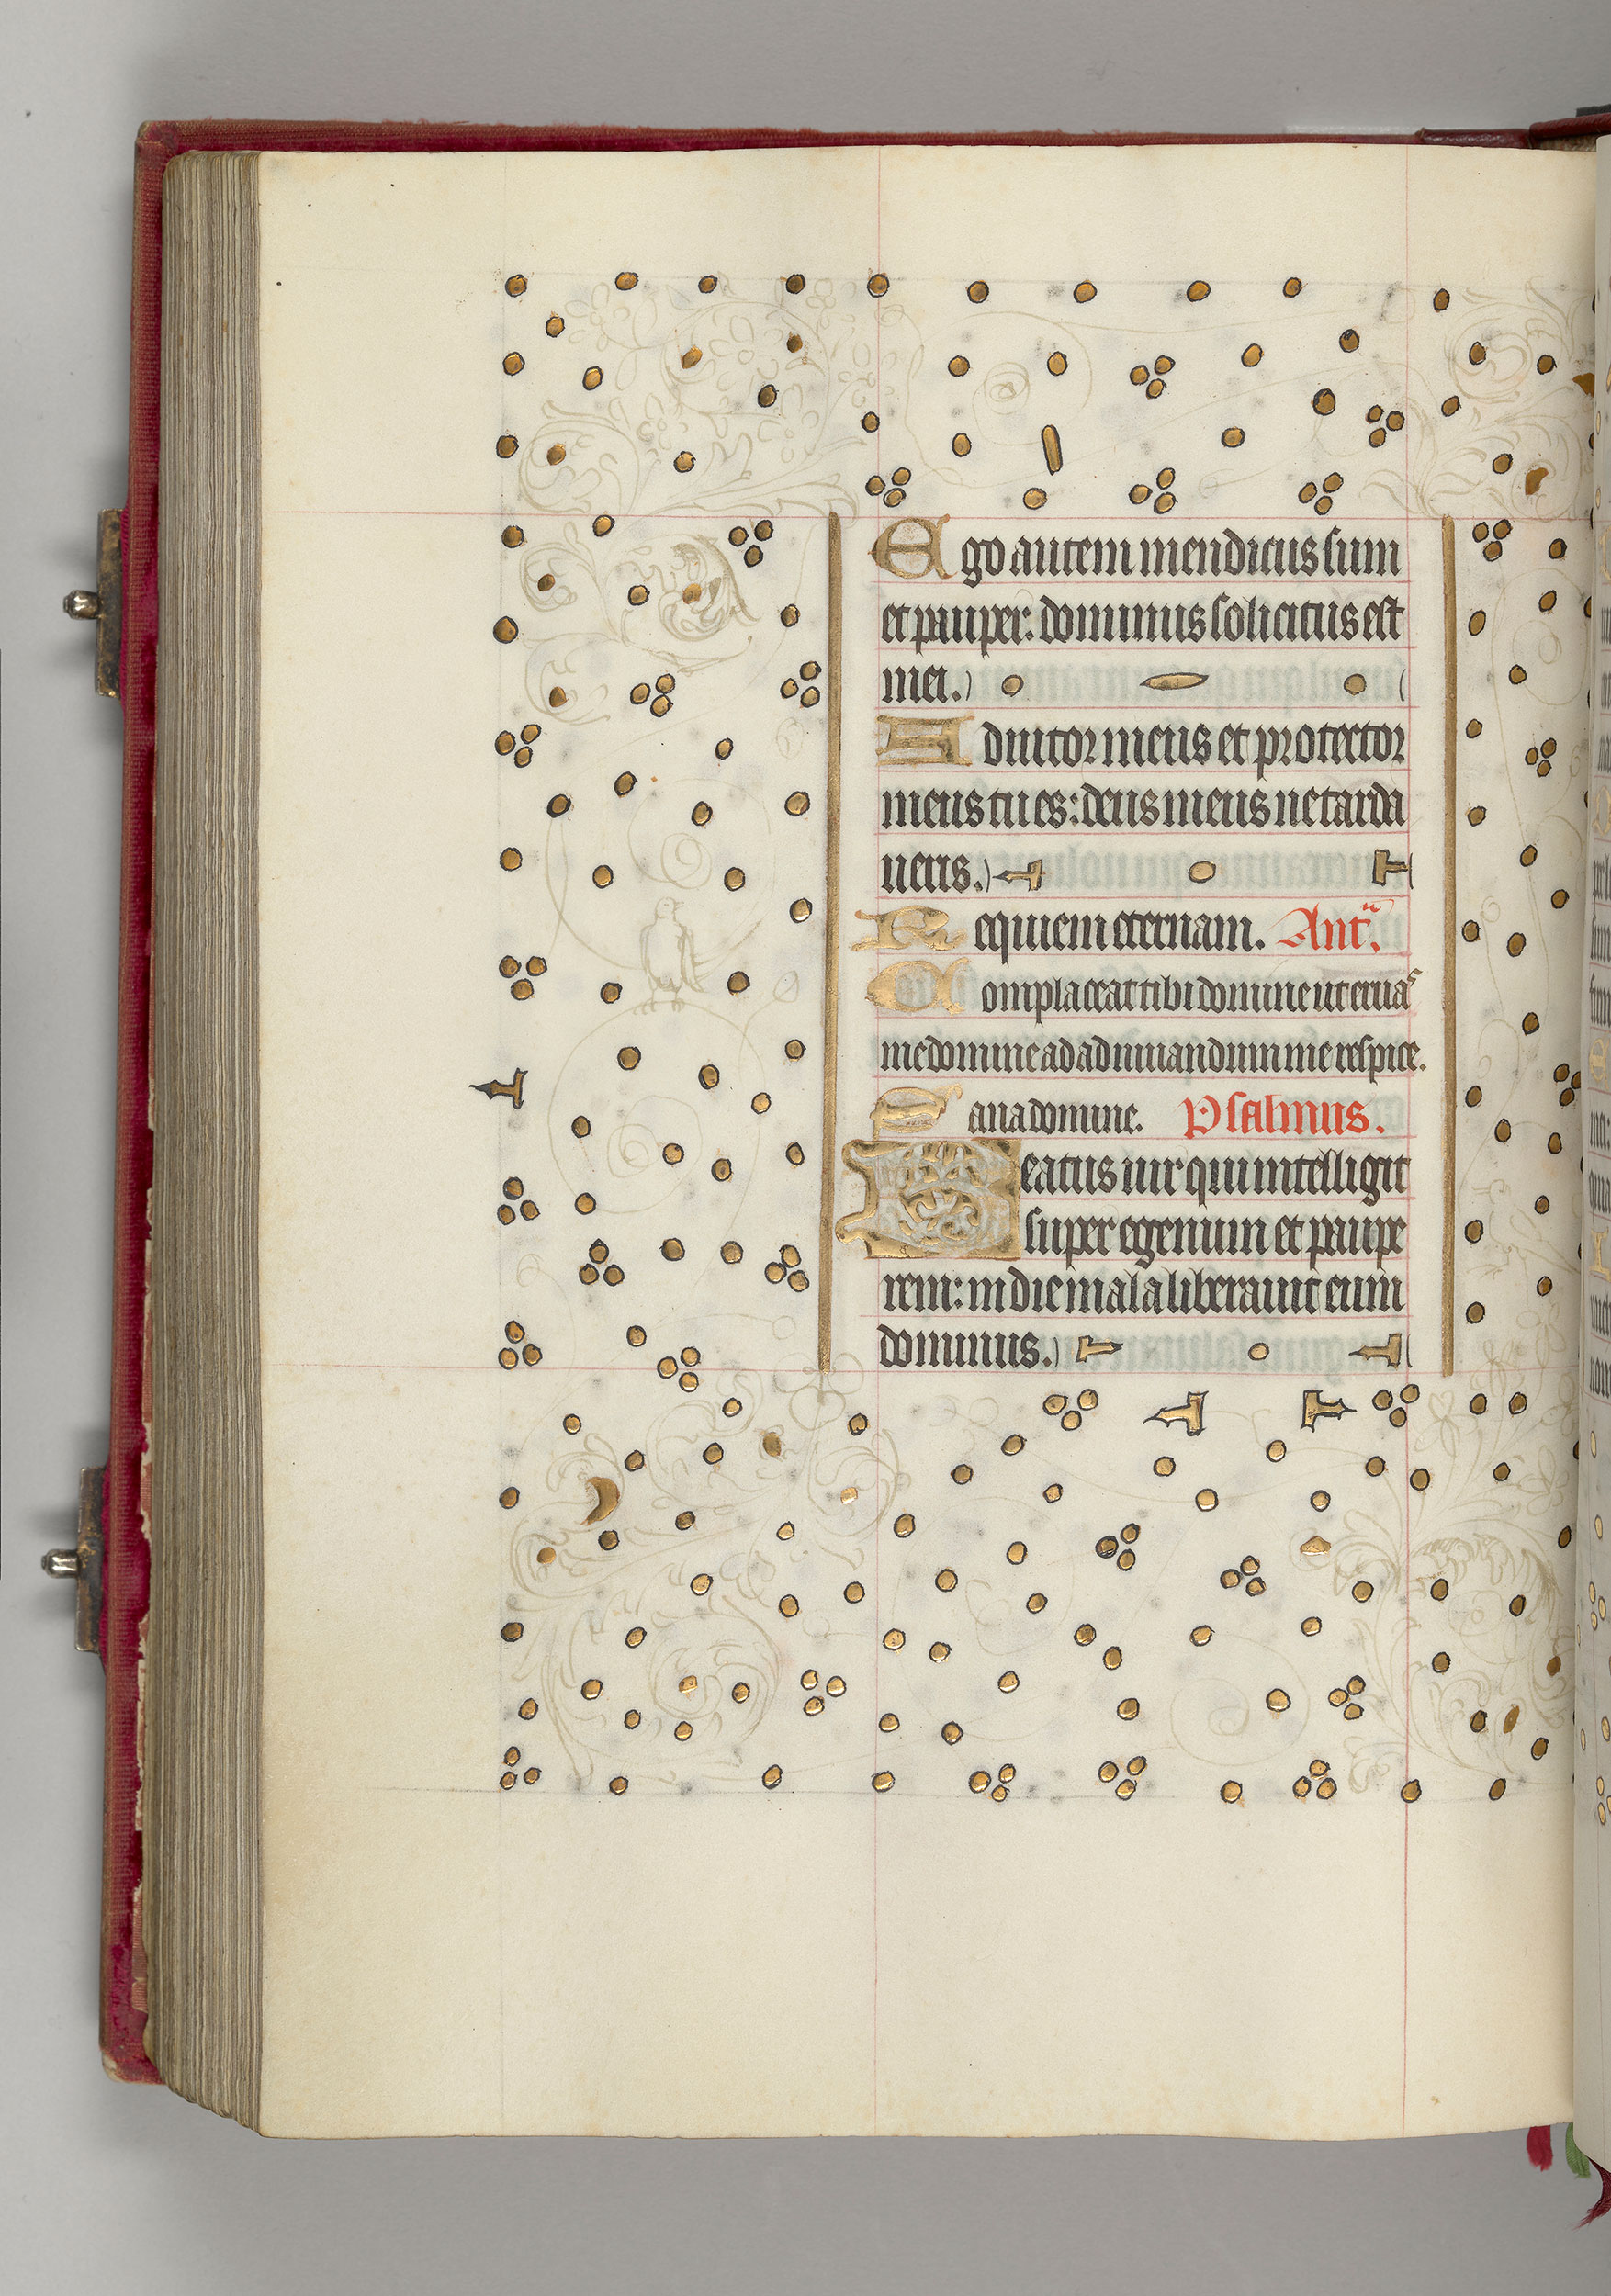 Ego autem mendicus sum
et pauper: dominus solicitus est
mei.
Adiutor meus et protector
meus tu es: deus meus ne tarda
ueris.
Requiem eternam. Ant.
Complaceat tibi domine ut eruas
me domine ad adiuuandum me respice.
Sana domine. Psalmus.
Beatus uir qui intelligit
super egenum et paupe
rem: in die mala liberauit eum
dominus.